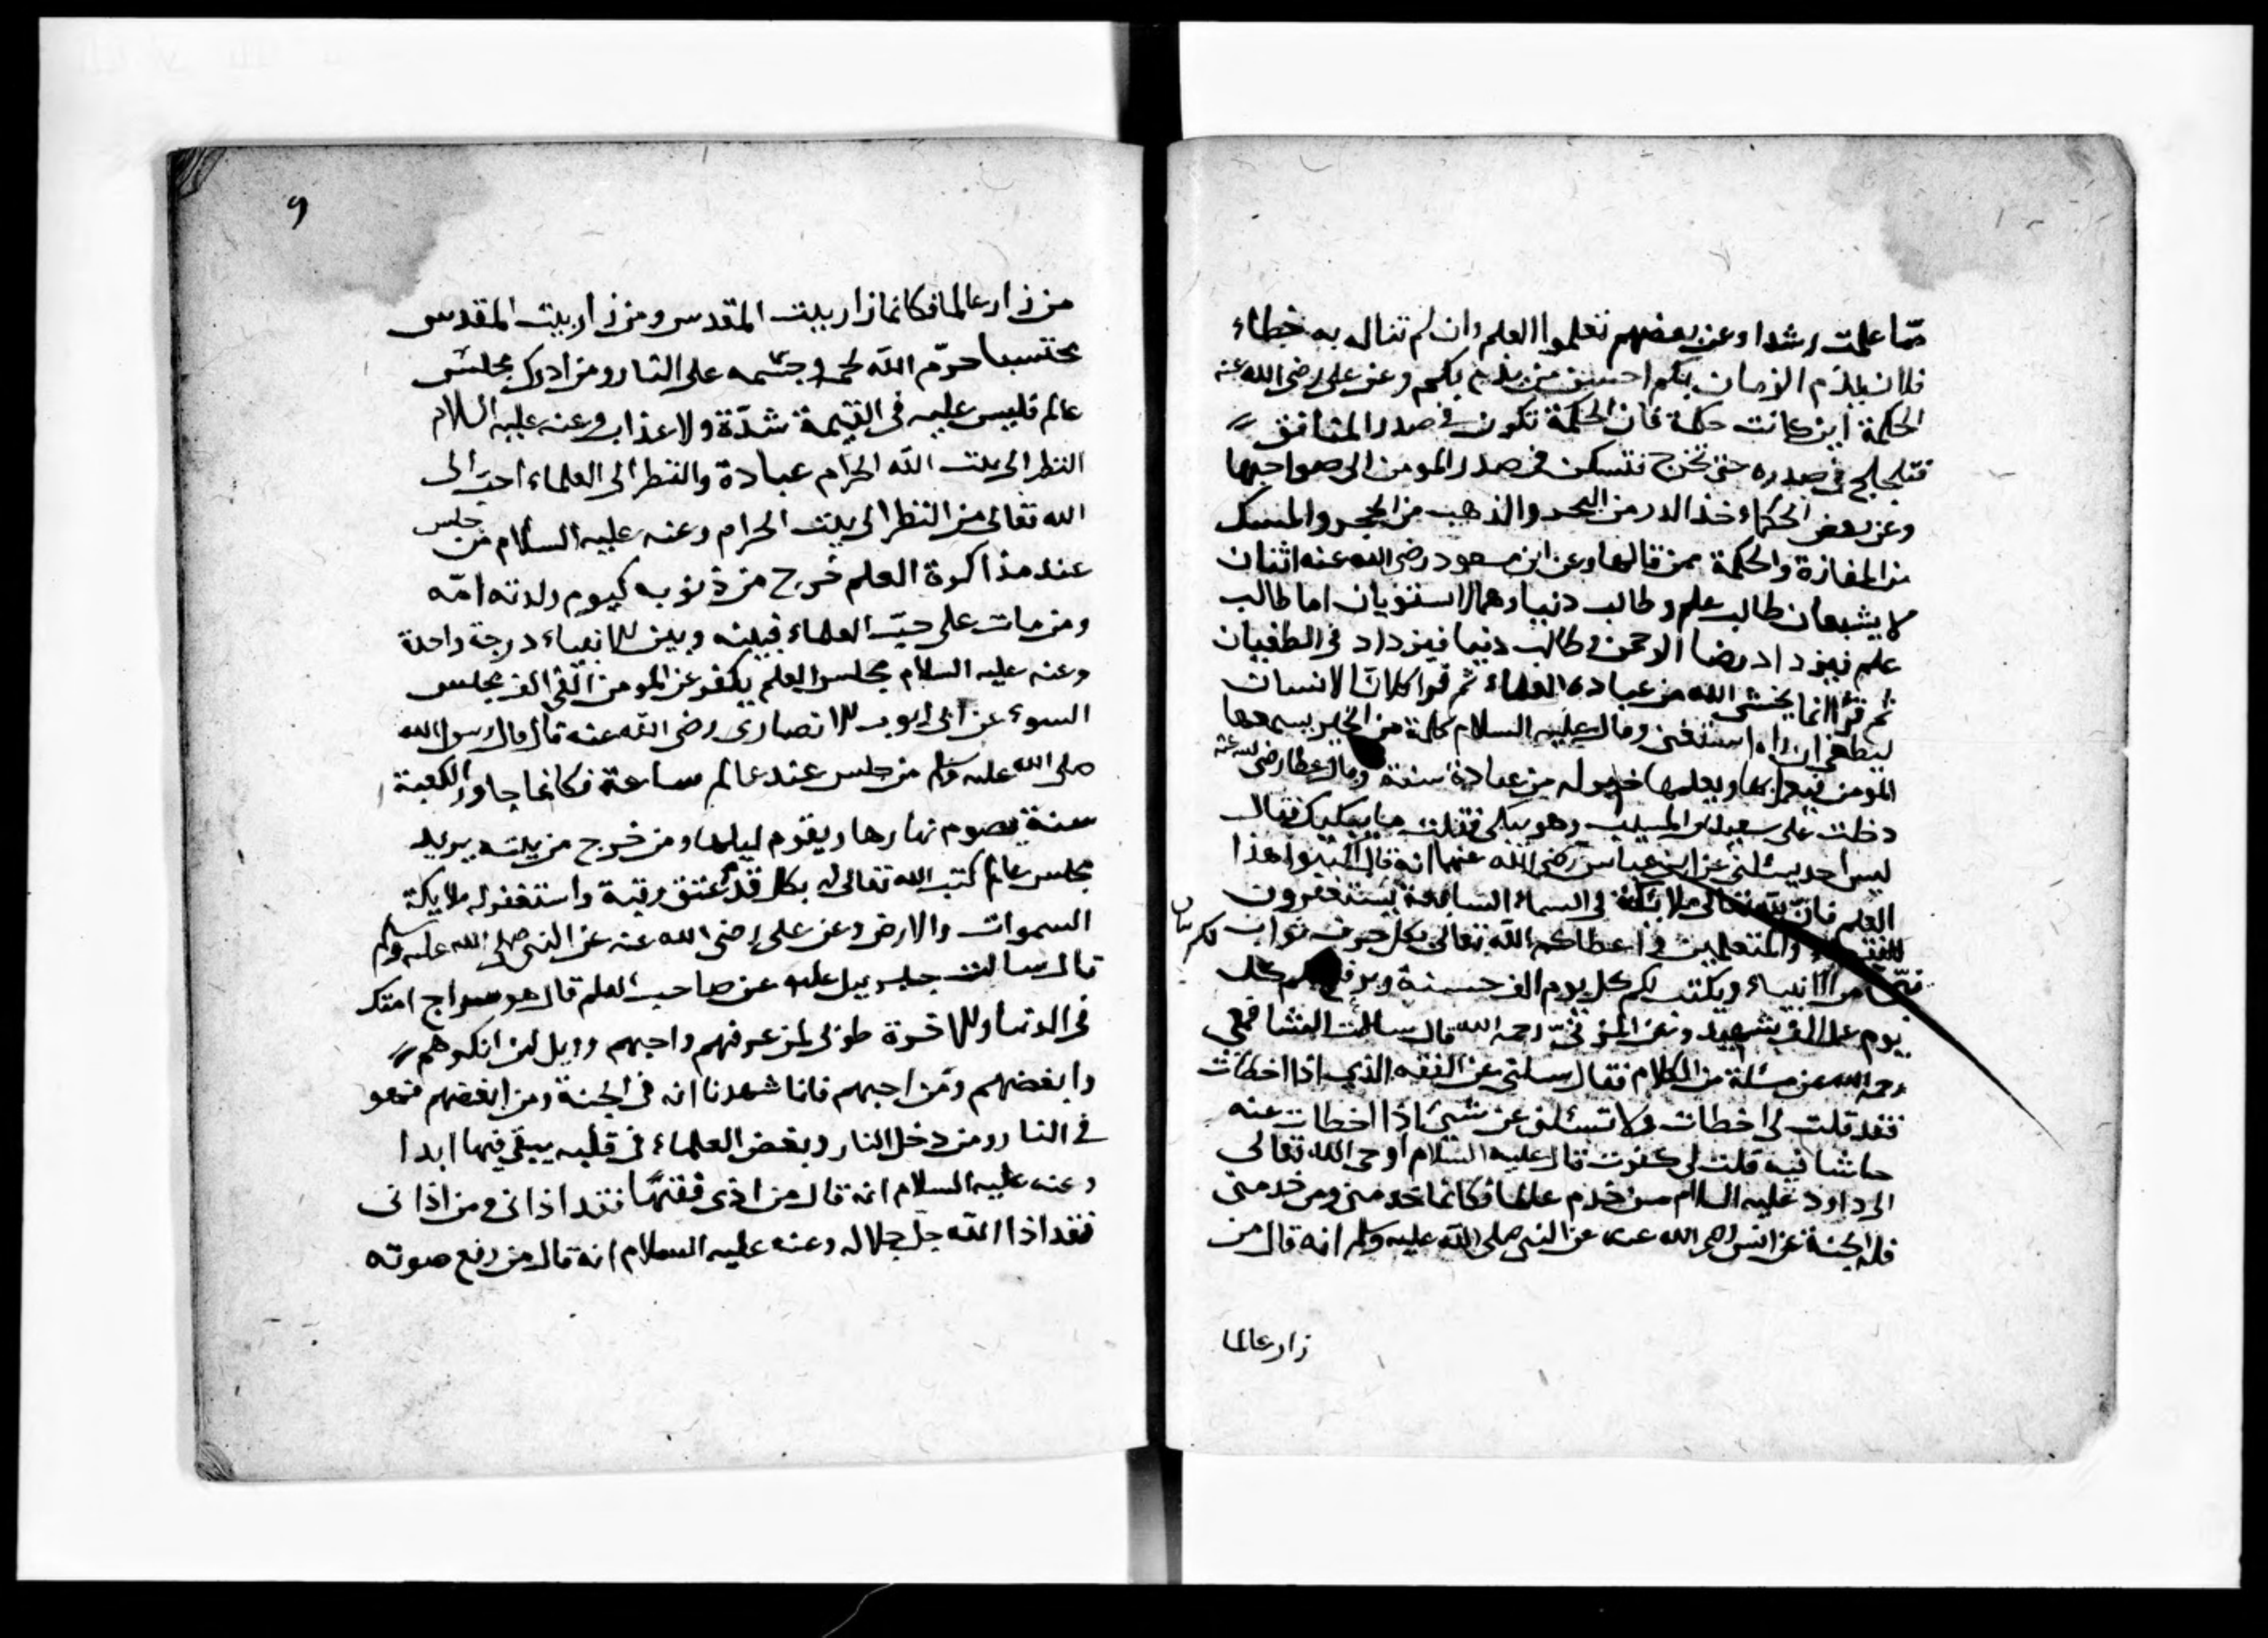 مما علمت رشدا وعن بعضهم تعلموا العلم وان لم تناله به خطاء
فلان يلزم الزمان بكم احسن من يلزم بكم وعن على رضى الله عنه
الحكمة اين كانت حكمة فان الحكمة تكون فى صدر المنافق
فتلجلج فى صدره حتى تخرج فتسكن فى صدر المومن الى صواحبها
وعن بعض الحكماء خذ الدر من البحر والذهب من الحجر والمسك
من المفازة والحكمة ممن قالها وعن ابن مسعود رضى الله عنه اثنان
لا يشبعان طالب علم وطالب دنيا وهما لا استويان اما طالب
علم فيزداد رضا الرحمن وطالب دنيا فيزداد فى الطغيان
ثم قرأ انما يخشى الله من عباده العلماء ثم قرا كلا ان الانسان
ليطغى ان راه استغنى وقال عليه السلام كلمة من الخير يسمعها
المومن فيعمل بها ويعلمها خير له من عبادة سنة وقال عطا رضى الله عنه
دخلت على سعيد المسيب وهو يبكى فقلت ما يبكيك فقال
ليس احد يسئلنى عن ابن عباس رضى الله عنهما انه قال اكتبوا هذا
العلم فان لله تعالى ملائكة فى السماء السابعة يستغفرون
والمتعلمين اعطاكم الله تعالى بكل حرف ثواب
لكم
من الانبياء ويكتب لكم كل يوم الف حسنة ويرفع كل
يوم عمل الف شهيد وعن المزنى رحمه الله قال سالت الشافعى
رحمه الله عن مسئلة من الكلام فقال سلنى عن الفقه الذى اذا اخطات
فقد قلت لى اخطات ولا تسئلنى عن شئ اذا اخطات عنه
حاشا فيه قلت لى كفرت قال عليه السلام اوحى الله تعالى
الى داود عليه السلام من خدم عالما فكانما خدمنى ومن خدمنى
فله الجنة عن انس رضى الله عنه عن النبى صلى الله عليه وسلم انه قال من
زار عالما
٩
من زار عالما فكانما زار بيت المقدس ومن زار بيت المقدس
محتسبا حرم الله لحمه وجسمه على النار ومن ادرك مجلس
عالم فليس عليه فى القيمة شدة ولا عذاب وعنه عليه السلام
النظر الى بيت الله الحرام عبادة والنظر الى العلماء احب الى
الله تعالى من النظر الى بيت الحرام وعنه عليه السلام من جلس
عند مذاكرة العلم خرج من ذنوبه كيوم ولدته امه
ومن مات على حب العلماء فبينه وبين الانبياء درجة واحدة
وعنه عليه السلام مجلس العلم يكفر عن المومن الفى الف مجلس
السوء عن ابى ايوب الانصارى رضى الله عنه قال قال رسول الله
صلى الله عليه وسلم من جلس عند عالم ساعة فكانما جاور الكعبة
سنة يصوم نهارها ويقوم ليلها ومن خرج من بيته يريد
مجلس عالم كتب الله تعالى له بكل قدم عتق رقبة واستغفر له ملايكة
السموات والارض وعن على رضى الله عنه عن النبى صلى الله عليه وسلم
قال سالت جبريل عليه عن صاحب العلم قال هو سراج امتك
فى الدنيا والاخرة طوبى لمن عرفهم واحبهم وويل لمن انكرهم
وابغضهم ومن احبهم فانا شهدنا انه فى الجنة ومن ابغضهم فهو
فى النار ومن دخل النار وبغض العلماء فى قلبه يبقى فيها ابدا
وعنه عليه السلام انه قال من اذى فقيها فقد اذانى ومن اذانى
فقد اذا الله جل جلاله وعنه عليه السلام انه قال من رفع صوته